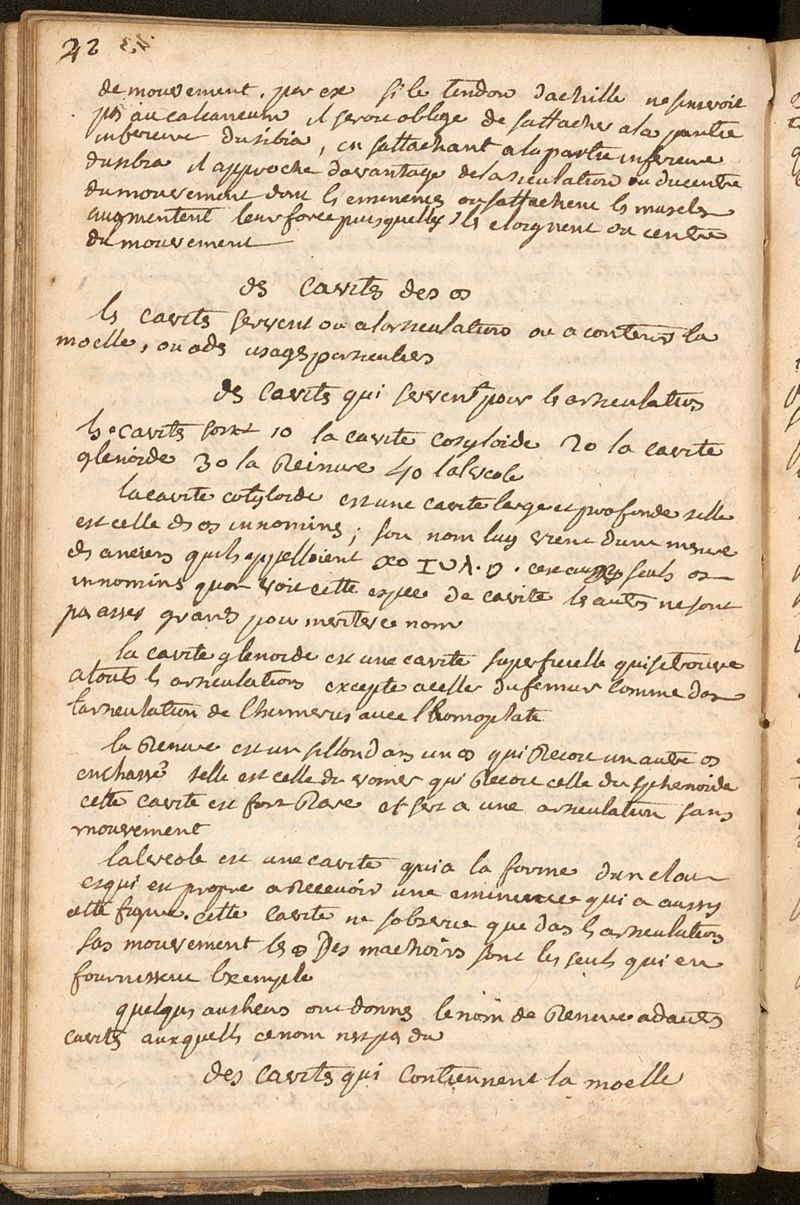 42
de mouvement. par ex si le tendon dachille ne sinseroit
pas au calcaneum il seroit oblige de sattacher a la partie
inferieure du tibia, en sattachant a la partie inferieure
du tibia il approche davantage de larticulation ou du centre
du mouvement dont les eminences ou sattachent les muscles
augmentent leur force puisquelles les eloignent du centre
du mouvement
des cavites des os
les cavites servent ou a larticulation ou a contenir la
moelle, ou a des usages particuliers
des cavites qui servent pour les articulations
les cavites sont 1o la cavite cotyloide 2o la cavite
glenoide 3o la Reinure 4o lalveole
la cavite cotyloide est une cavite large et profonde telle
est celle des os innomines; son nom luy vient dune mesure
des anciens quils appelloient . ce seuls os
innomines quon voit cette espece de cavite les autres ne sont
pas asses grandes pour meriter ce nom
la cavite glenoide est une cavite superficielle qui se trouve
a toutes les articulations excepte a celles du femur comme dans
larticulation de lhumerus avec lhomoplate
la Renure est un sillon dans un os qui Recoit un autre os
enchassé telle est celle du vomer qui Recoit celle du sphenoide
cette cavite est fort Rare et sert a une articulation sans
mouvement
lalveole est une cavite qui a la forme dun clou
et qui est propre a Recevoir une eminence qui a aussy
cette figure. cette cavite ne sobserve que dans les articulations
sans mouvement les os Des machoires sont les seuls qui en
fournissent lexemple
quelques autheurs ont donné le nom de Renure a dautres
cavites auxquelles ce nom nest pas du
des cavites qui contiennent la moelle